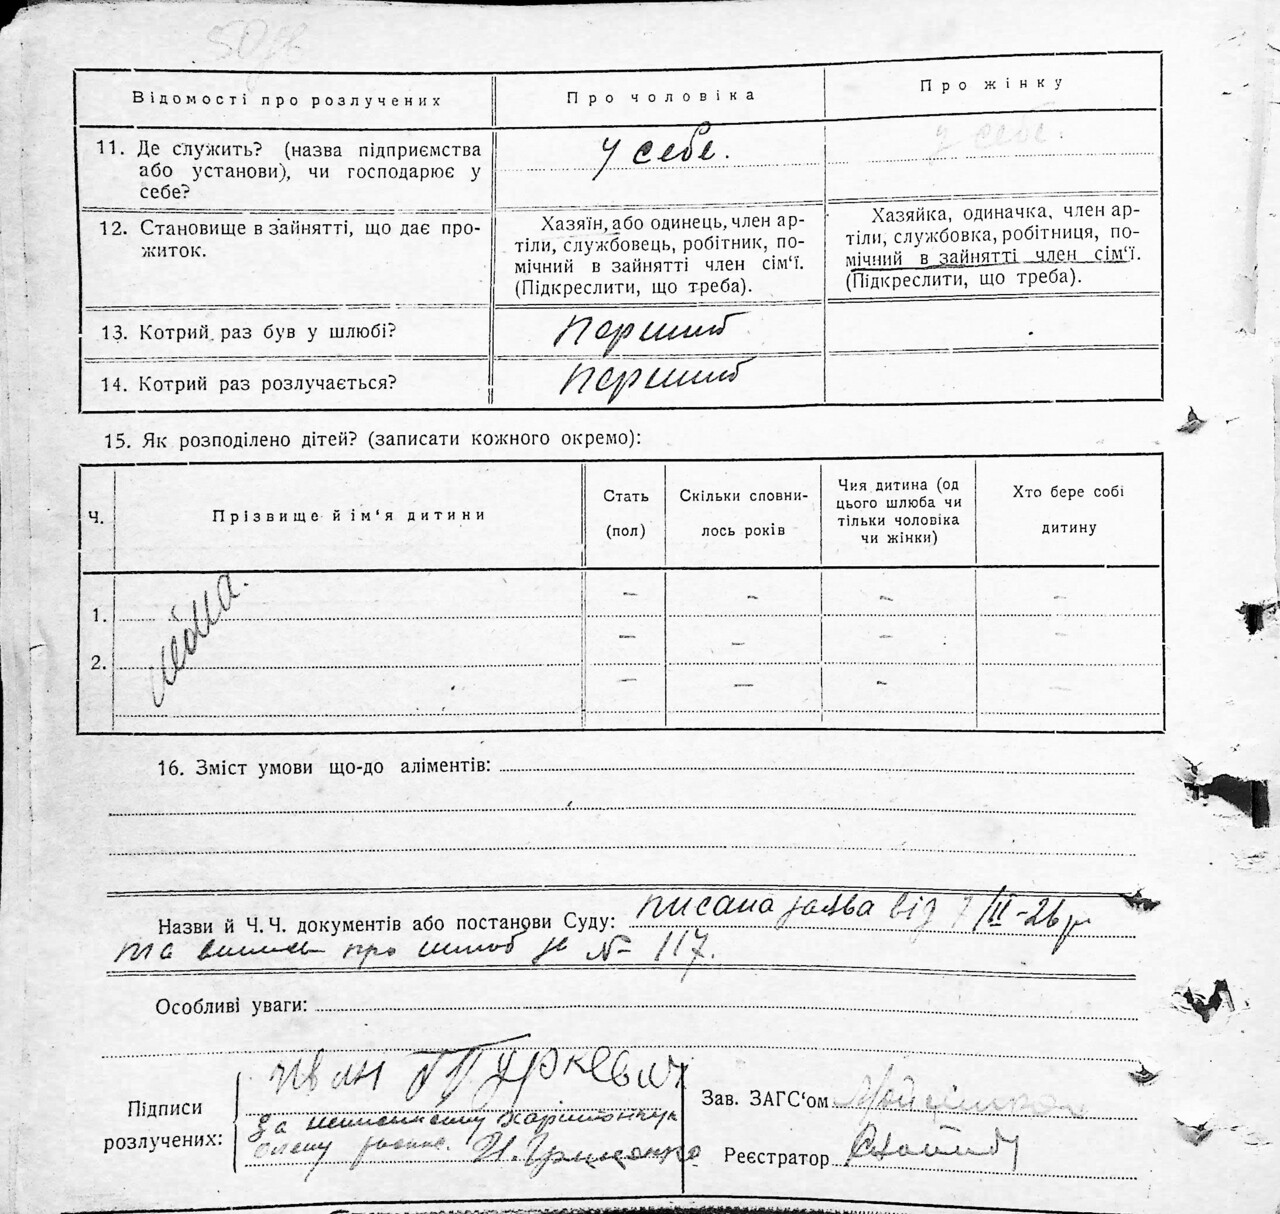 Відомості про розлучених
Про чоловіка
Про жінку
11. Де служить? (назва підприємства
або установи), чи господарює у
себе?
у себе.
у себе.
12. Становище в зайнятті, що дає про-
житок.
Хазяїн, або одинець, член ар-
тіли, службовець, робітник, по-
мічний в зайнятті член сім‘ї.
(Підкреслити, що треба).
Хазяйка, одиначка, член ар-
тіли, службовка, робітниця, по-
мічний в зайнятті член сім‘ї.
(Підкреслити, що треба).
13. Котрий раз був у шлюбі?
Перший
14. Котрий раз розлучається?
Перший
15. Як розподілено дітей? (записати кожного окремо):
Ч.
Прізвище й ім‘я дитини
Стать
(пол)
Скільки сповни-
лось років
Чия дитина (од
цього шлюба чи
тільки чоловіка
чи жінки)
Хто бере собі
дитину
1.
2.
нема.
16. Зміст умови що-до аліментів:
Назви й Ч. Ч. документів або постанови Суду: писана заява від /II-26 р
та про шлюб № 117.
Особливі уваги:
Підписи
розлучених:
Іван Туркевич
за неписьменну
Зав. ЗАГС‘ом
Реєстратор